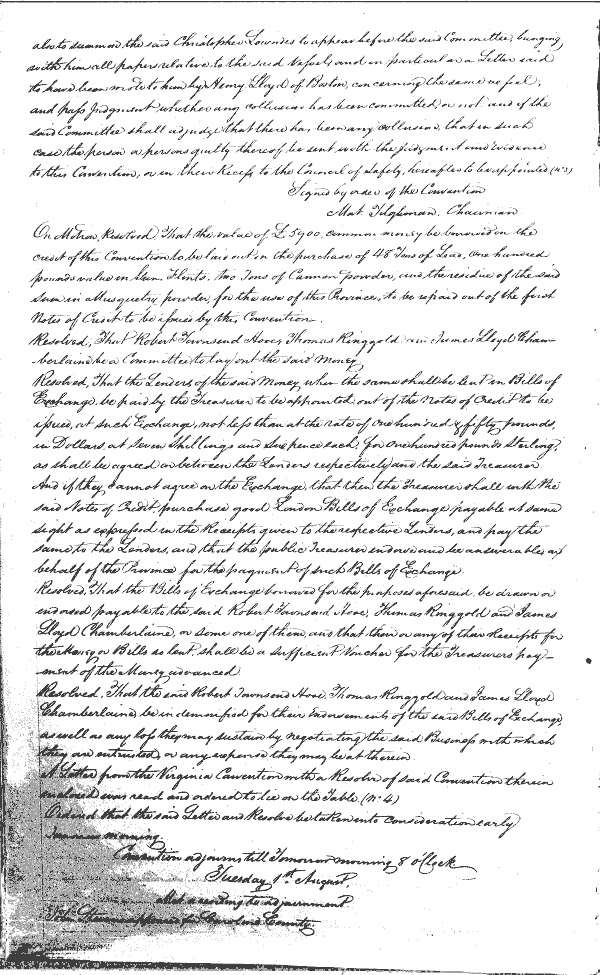 also to summon the said Christopher Lowndes to appear before the said Committee, bringing
with him all papers relative to the said Vessel, and in particular a Letter said
to have been wrote to him by Henry Lloyd of Boston, concerning the same vessel,
and pass Judgment whether any collusion has been committed, or not, and if the
said Committee shall adjudge that there has been any collusion, that in such
case the person or persons guilty thereof, be sent, with the Judgment and evidence
to this Convention, or in their Recess to the Council of Safety, hereafter to be appointed (No 3)
Signed by order of the Convention
Mat. Tilghman, Chairman
On Motion, Resolved, That the value of £ 5900, common money be borrowed on the
credit of this Convention to be laid out in the purchase of 48 Tons of Lead, One hundred
pounds value in Gun Flints, two Tons of Cannon powder, and the residue of the said
Sum in Musquetry powder, for the use of this Province, to be repaid out of the first
Notes of Credit to be issued by this Convention.
Resolved, That Robert Townsend Hooe, Thomas Ringgold and James Lloyd Cham-
berlaine be a Committee to lay out the said Money
Resolved, That the Lenders of the said Money, when the same shall be lent in Bills of
Exchange, be paid by the Treasurer to be appointed, out of the Notes of Credit to be
issued, at such Exchange, not less than at the rate of one hundred & fifty pounds,
in Dollars, at Seven Shillings and Sixpence each, for one hundred pounds Sterling,
as shall be agreed on between the Lenders respectively and the said Treasurer
And if they cannot agree on the Exchange, that then the Treasurer shall with the
said Notes of Credit, purchase good London Bills of Exchange payable at same
sight as expressed in the Receipts given to the respective Lenders, and pay the
same to the Lenders, and that the public Treasurer endorse and be answerable in
behalf of the Province for the payment of such Bills of Exchange
Resolved, That the Bills of Exchange borrowed for the purposes aforesaid, be drawn or
endorsed payable to the said Robert Townsend Hooe, Thomas Ringgold and James
Lloyd Chamberlaine, or some one of them, and that their or any of their Receipts for
the Money or Bills as lent, shall be a sufficient Voucher for the Treasurers pay-
ment of the Money advanced
Resolved, That the said Robert Townsend Hooe, Thomas Ringgold and James Lloyd
Chamberlaine, be indemnified for their Endorsements of the said Bills of Exchange
as well as any loss they may sustain by negotiating the said Business with which
they are entrusted, or any expense they may be at therein
A Letter from the Virginia Convention with a Resolve of said Convention therein
enclosed was read and ordered to lie on the Table (No 4)
Ordered that the said Letter and Resolve be taken into consideration early
Tomorrow morning.
Convention adjourns till Tomorrow morning 8 o'Clock
Tuesday 1st August,
Met according to adjournment
appeared for Caroline County.